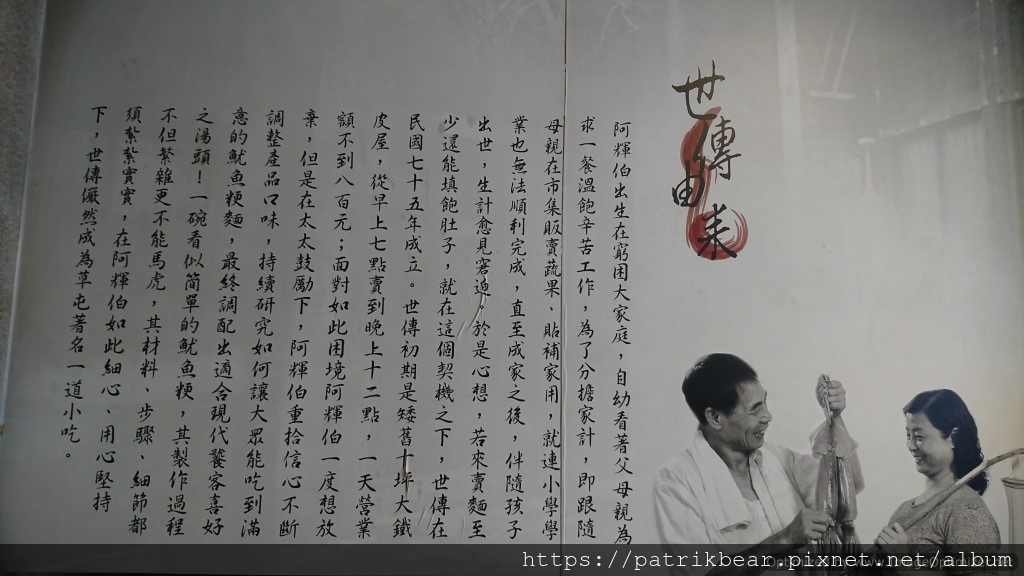 世傳由來
阿輝伯出生在窮困大家庭，自幼看著父母親為
求一餐溫飽辛苦工作，為了分擔家計，即跟隨
母親在市集販賣蔬果、貼補家用，就連小學學
業也無法順利完成，直至成家之後，伴隨孩子
出世，生計愈見窘迫，於是心想，若來賣麵至
少還能填飽肚子，就在這個契機之下，世傳在
民國七十五年成立。世傳初期是矮舊十坪大鐵
皮屋，從早上七點賣到晚上十二點，一天營業
額不到八百元；面對如此困境阿輝伯一度想放
棄，但是在太太鼓勵下，阿輝伯重拾信心不斷
調整產品口味，持續研究如何讓大眾能吃到滿
意的魷魚粳麵，最終調配出適合現代饕客喜好
之湯頭！一碗看似簡單的魷魚粳，其製作過程
不但繁雜更不能馬虎，其材料、步驟、細節都
須紮紮實實，在阿輝伯如此細心、用心堅持
下，世傳儼然成為草屯著名一道小吃。
https://patrikbear.pixnet.net/album